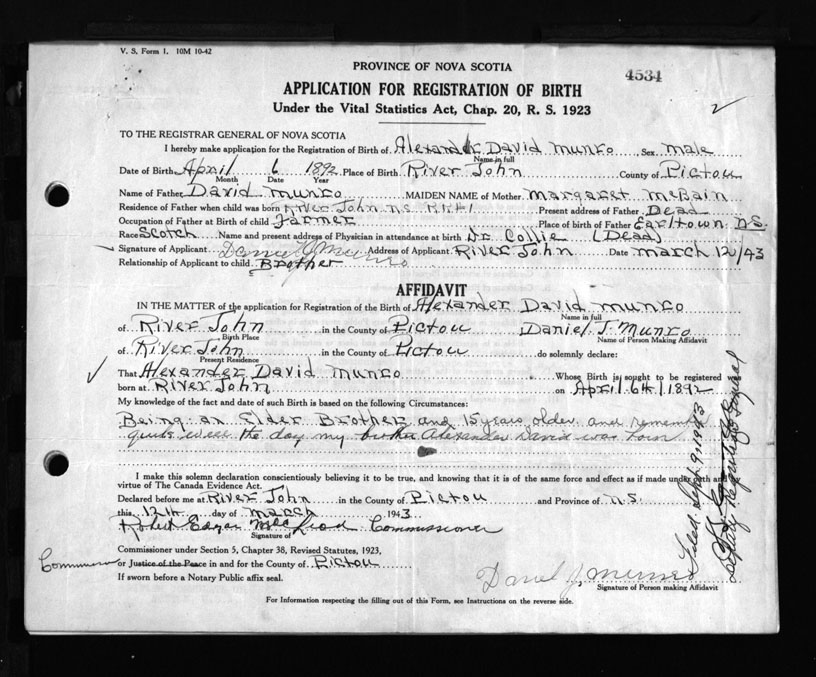 V. S. Form 1. 10M 10-42
PROVINCE OF NOVA SCOTIA
4534
APPLICATION FOR REGISTRATION OF BIRTH
Under the Vital Statistics Act, Chap. 20, R. S. 1923
TO THE REGISTRAR GENERAL OF NOVA SCOTIA
I hereby make application for the Registration of Birth of Alexander David Munro Sex male
Name in full
Date of Birth April 6 1892 Place of Birth River John County of Pictou
Month Date Year
Name of Father David Munro MAIDEN NAME of Mother Margaret McBain
Residence of Father when child was born River John N.S. R.R.#1 Present address of Father Dead
Occupation of Father at Birth of child Farmer Place of birth of Father Earltown N.S.
Race Scotch Name and present address of Physician in attendance at birth Dr. Collie (Dead)
Signature of Applicant Daniel J. Munro Address of Applicant River John Date March 12/43
Relationship of Applicant to child Brother
AFFIDAVIT
IN THE MATTER of the application for Registration of the Birth of Alexander David Munro
Name in full
of River John in the County of Pictou Daniel J. Munro
Birth Place Name of Person Making Affidavit
of River John in the County of Pictou do solemnly declare:
Present Residence
That Alexander David Munro Whose Birth is sought to be registered was
born at River John on April 6th/1892
My knowledge of the fact and date of such Birth is based on the following Circumstances:
Being an Elder Brother and 15 years older and remember
quite well the day my brother Alexander David was born
I make this solemn declaration conscientiously believing it to be true, and knowing that it is of the same force and effect as if made under oath and by
virtue of The Canada Evidence Act.
Declared before me at River John in the County of Pictou and Province of N.S.
this 12th day of March 1943
Robert Edgar MacLeod Commissioner
Signature of
Commissioner under Section 5, Chapter 38, Revised Statutes, 1923,
or Justice of the Peace in and for the County of Pictou
If sworn before a Notary Public affix seal.
Daniel J. Munro
Signature of Person making Affidavit
For Information respecting the filling out of this Form, see Instructions on the reverse side.
Filed Sept 9, 1943
Deputy Registrar General